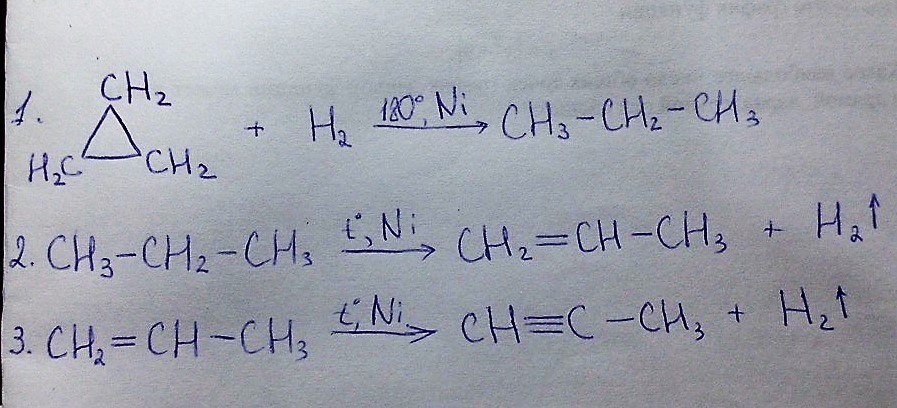 CH₂
1. H₂C CH₂ + H₂ 180°, Ni → CH₃-CH₂-CH₃
2. CH₃-CH₂-CH₃ t°, Ni → CH₂=CH-CH₃ + H₂↑
3. CH₂=CH-CH₃ t°, Ni → CH≡C-CH₃ + H₂↑